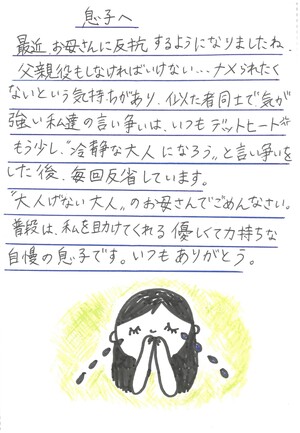 息子へ
最近、お母さんに反抗するようになりましたね。
父親役もしなければいけない…ナメられたく
ないという気持ちがあり、似た者同士で気が
強い私達の言い争いは、いつもデットヒート💦
もう少し、“冷静な大人になろう”と言い争いを
した後、毎回反省しています。
“大人げない大人”のお母さんでごめんなさい。
普段は、私を助けてくれる優しくて力持ちな
自慢の息子です。いつもありがとう。